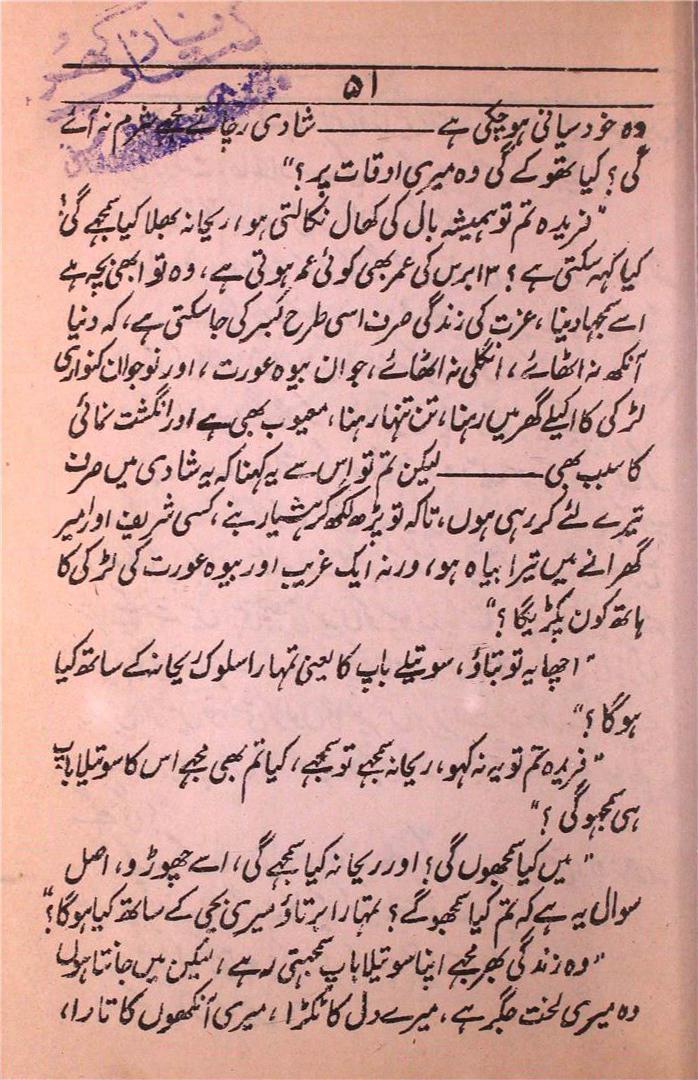 ۵۱
وہ خود سیانی ہو چکی ہے ——— شادی رچاتے مجھے شرم نہ آئے
گی؟ کیا تھوکے گی وہ میری اوقات پر؟"
"فریدہ تم تو ہمیشہ بال کی کھال نکالتی ہو، ریحانہ بھلا کیا سمجھے گی؟
کیا کہہ سکتی ہے؟ ۱۳ برس کی عمر بھی کوئی عمر ہوتی ہے، وہ تو ابھی بچہ ہے
اسے سمجھا دینا، عزت کی زندگی صرف اسی طرح بسر کی جا سکتی ہے، کہ دنیا
آنکھ نہ اٹھائے، انگلی نہ اٹھائے، جوان بیوہ عورت، اور نوجوان کنواری
لڑکی کا اکیلے گھر میں رہنا، تن تنہا رہنا، معیوب بھی ہے اور انگشت نمائی
کا سبب بھی ——— لیکن تم تو اس سے یہ کہنا کہ یہ شادی میں صرف
تیرے لئے کر رہی ہوں، تاکہ تو پڑھ لکھ کر ہشیار بنے، کسی شریف اور امیر
گھرانے میں تیرا بیاہ ہو، ورنہ ایک غریب اور بیوہ عورت کی لڑکی کا
ہاتھ کون پکڑیگا؟"
"اچھا یہ تو بتاؤ، سوتیلے باپ کا یعنی تمہارا سلوک ریحانہ کے ساتھ کیا
ہوگا؟"
"فریدہ تم تو یہ نہ کہو، ریحانہ سمجھے تو سمجھے، کیا تم بھی مجھے اس کا سوتیلا باپ
ہی سمجھو گی؟"
"میں کیا سمجھوں گی؟ اور ریحانہ کیا سمجھے گی، اسے چھوڑو، اصل
سوال یہ ہے کہ تم کیا سمجھو گے؟ تمہارا برتاؤ میری بچی کے ساتھ کیا ہوگا؟"
"وہ زندگی بھر مجھے اپنا سوتیلا باپ سمجھتی رہے، لیکن میں جانتا ہوں
وہ میری لخت جگر ہے، میرے دل کا ٹکڑا، میری آنکھوں کا تارا،